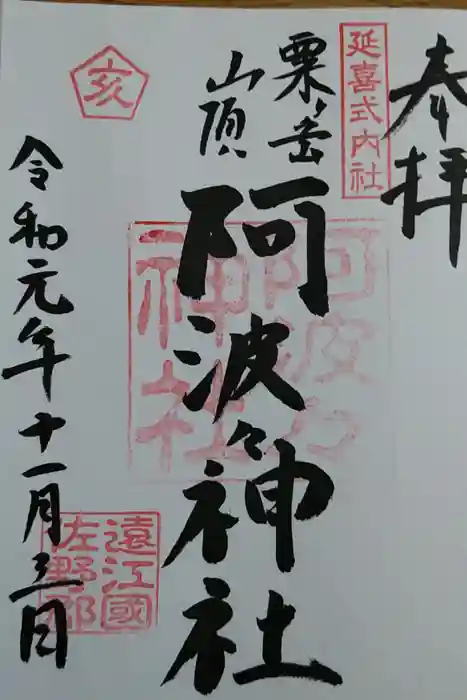 奉拝
延喜式内社
粟ヶ岳
山頂
阿波々神社
阿波々
神社
亥
令和元年十一月三日
遠江國
佐野郡